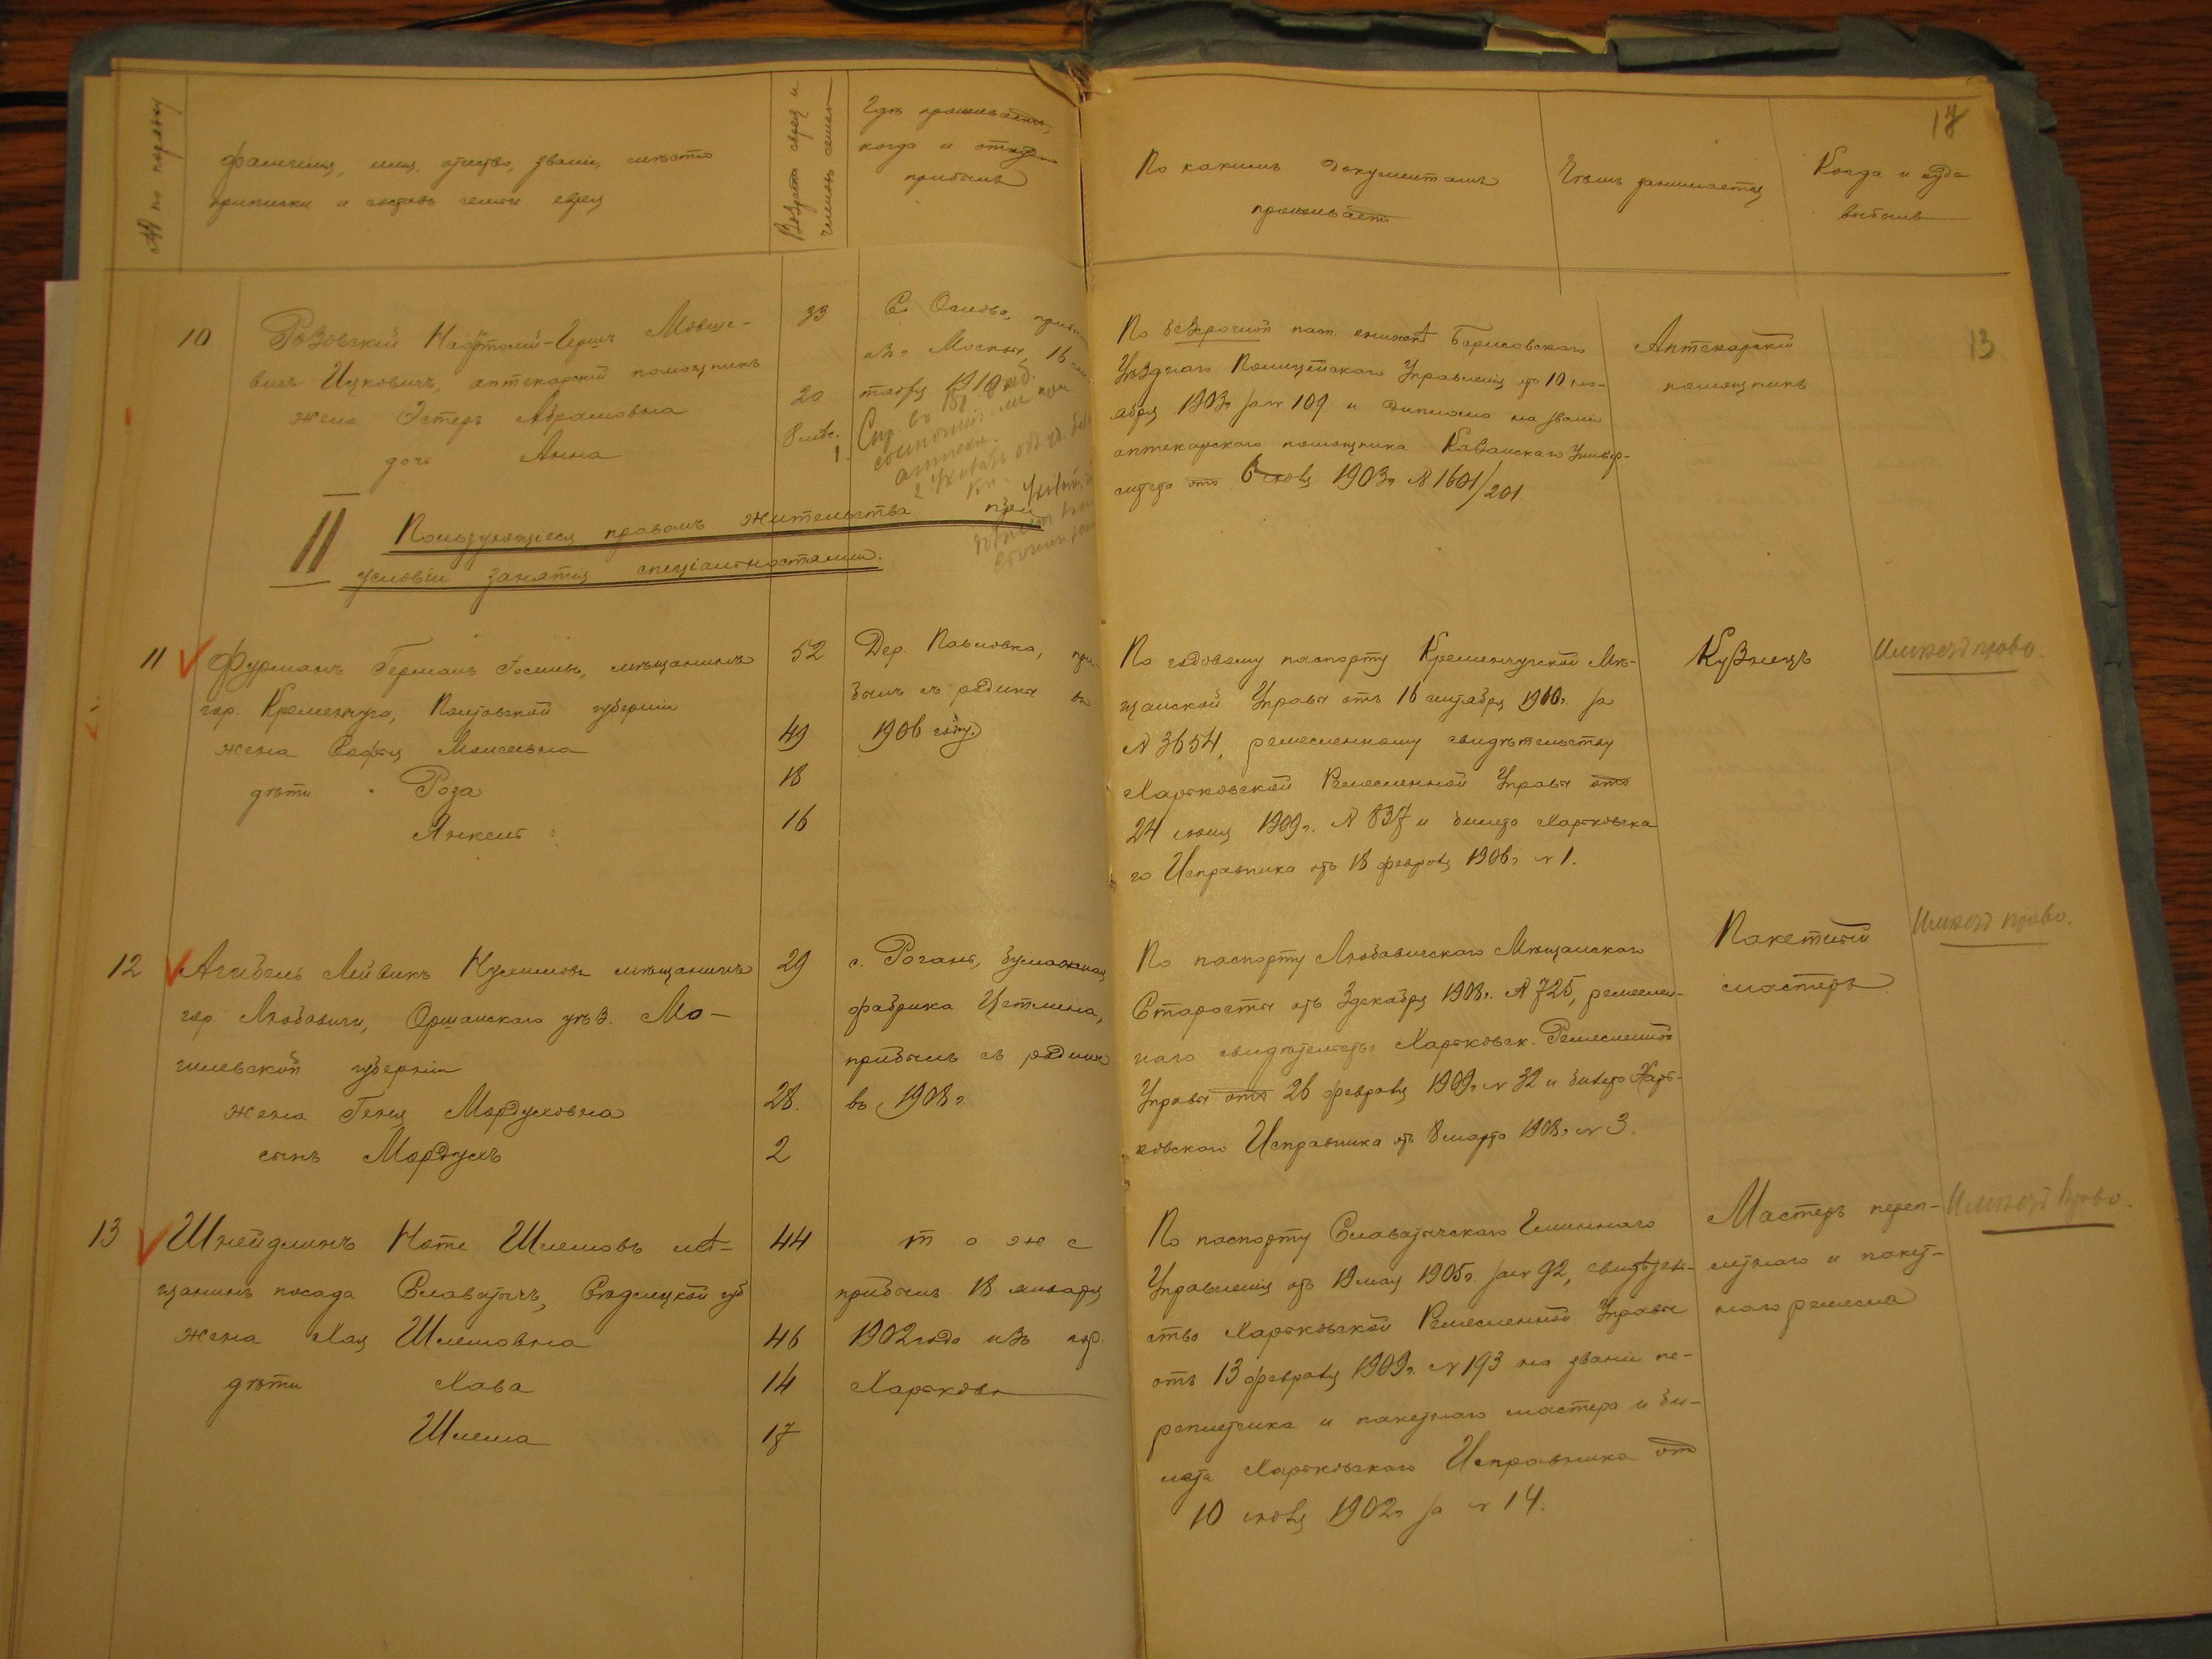 № по порядку
Фамилия, имя, отчество, званіе, мѣсто
приписки и составъ семьи еврея
Возрастъ еврея и
членовъ семьи
Гдѣ проживаетъ,
когда и откуда
прибылъ
По какимъ документамъ
проживаетъ
Чѣмъ занимается
Когда и куда
выбылъ
17
13
10
Розовскій Нафтолій-Гершъ Мовше-
вичъ Ицковичъ, аптекарскій помощникъ
жена Эстеръ Абрамовна
дочь Анна
33
20
8 мѣс.
С. Основа,
изъ Москвы, 16
1910
По безсрочной пасп. книжкѣ Борисовскаго
Уѣзднаго Полицейскаго Управленія отъ 10 но-
абря 1903г за № 109 и диплома на званіе
аптекарскаго помощника Казанскаго Универ-
ситета отъ 6 1903г № 1601/201.
Аптекарскій
помощникъ
II Пользующіеся правомъ жительства при
условіи занятія спеціальностями.
11
Фурманъ Германъ Іосиевъ, мѣщанинъ
гор. Кременчуга, Полтавской губерніи
жена Софія Моисеевна
дѣти Роза
Янкель
52
49
18
16
Дер. Павловка, при
былъ съ родины въ
1906 году.
По годовому паспорту Кременчугской Мѣ-
щанской Управы отъ 16 сентября 1910г. за
№ 3654, ремесленному свидѣтельству
Харьковской Ремесленной Управы отъ
24 іюня 1909г. № 837 и билета Харьковска
го Исправника отъ 18 февраля 1906г № 1.
Кузнецъ
Имѣетъ право.
12
Агибель Лейвикъ Нулимовъ мѣщанинъ
гор. Любавичи, Оршанскаго уѣз. Мо-
гилевской губерніи
жена Геня Мордуховна
сынъ Мордухъ
29
28.
2
с. Рогань, бумажная
фабрика Цетлина,
прибылъ съ родины
въ 1908г
По паспорту Любавичскаго Мѣщанскаго
Старосты отъ 3 декабря 1908г. № 725, ремеслен-
наго свидѣтельства Харьковск. Ремесленной
Управы отъ 26 февраля 1909г № 32 и билета Харь-
ковскаго Исправника отъ 8 марта 1908г № 3.
Пакетный
мастеръ
Имѣетъ право.
13
Шнейдлинъ Ноте Шлемовъ мѣ-
щанинъ посада Славатычъ, Сѣдлецкой губ
жена Хая Шлемовна
дѣти Хава
Шлема
44
46
14
17
тоже
прибылъ 18 января
1902 года изъ гор.
Харькова
По паспорту Славатычскаго Гминнаго
Управленія отъ 19 мая 1905г. за № 92, свидѣтель-
ство Харьковской Ремесленной Управы
отъ 13 февраля 1909г. № 193 на званіе пе-
реплетчика и пакетнаго мастера и би-
лета Харьковскаго Исправника отъ
10 1902г за № 14.
Мастеръ переп-
летнаго и пакет-
наго ремесла
Имѣетъ право.